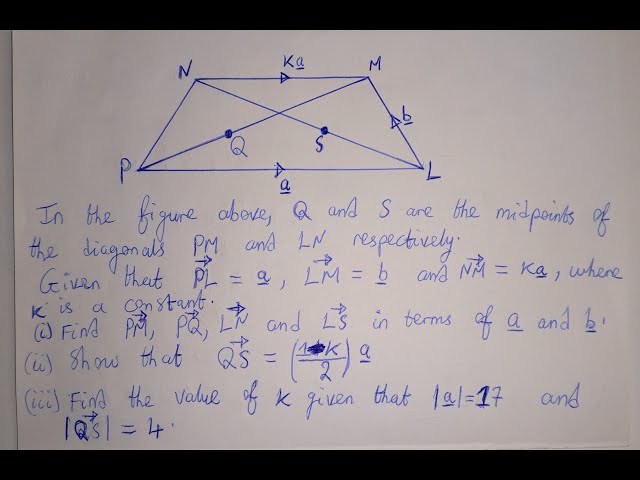 N
ka
M
b
Q
S
P
a
L
In the figure above, Q and S are the midpoints of
the diagonals PM and LN respectively.
Given that PL = a, LM = b and NM = ka, where
k is a constant.
(i) Find PM, PQ, LN and LS in terms of a and b.
(ii) Show that QS = (1-k/2) a
(iii) Find the value of k given that |a|=17 and
|QS| = 4.